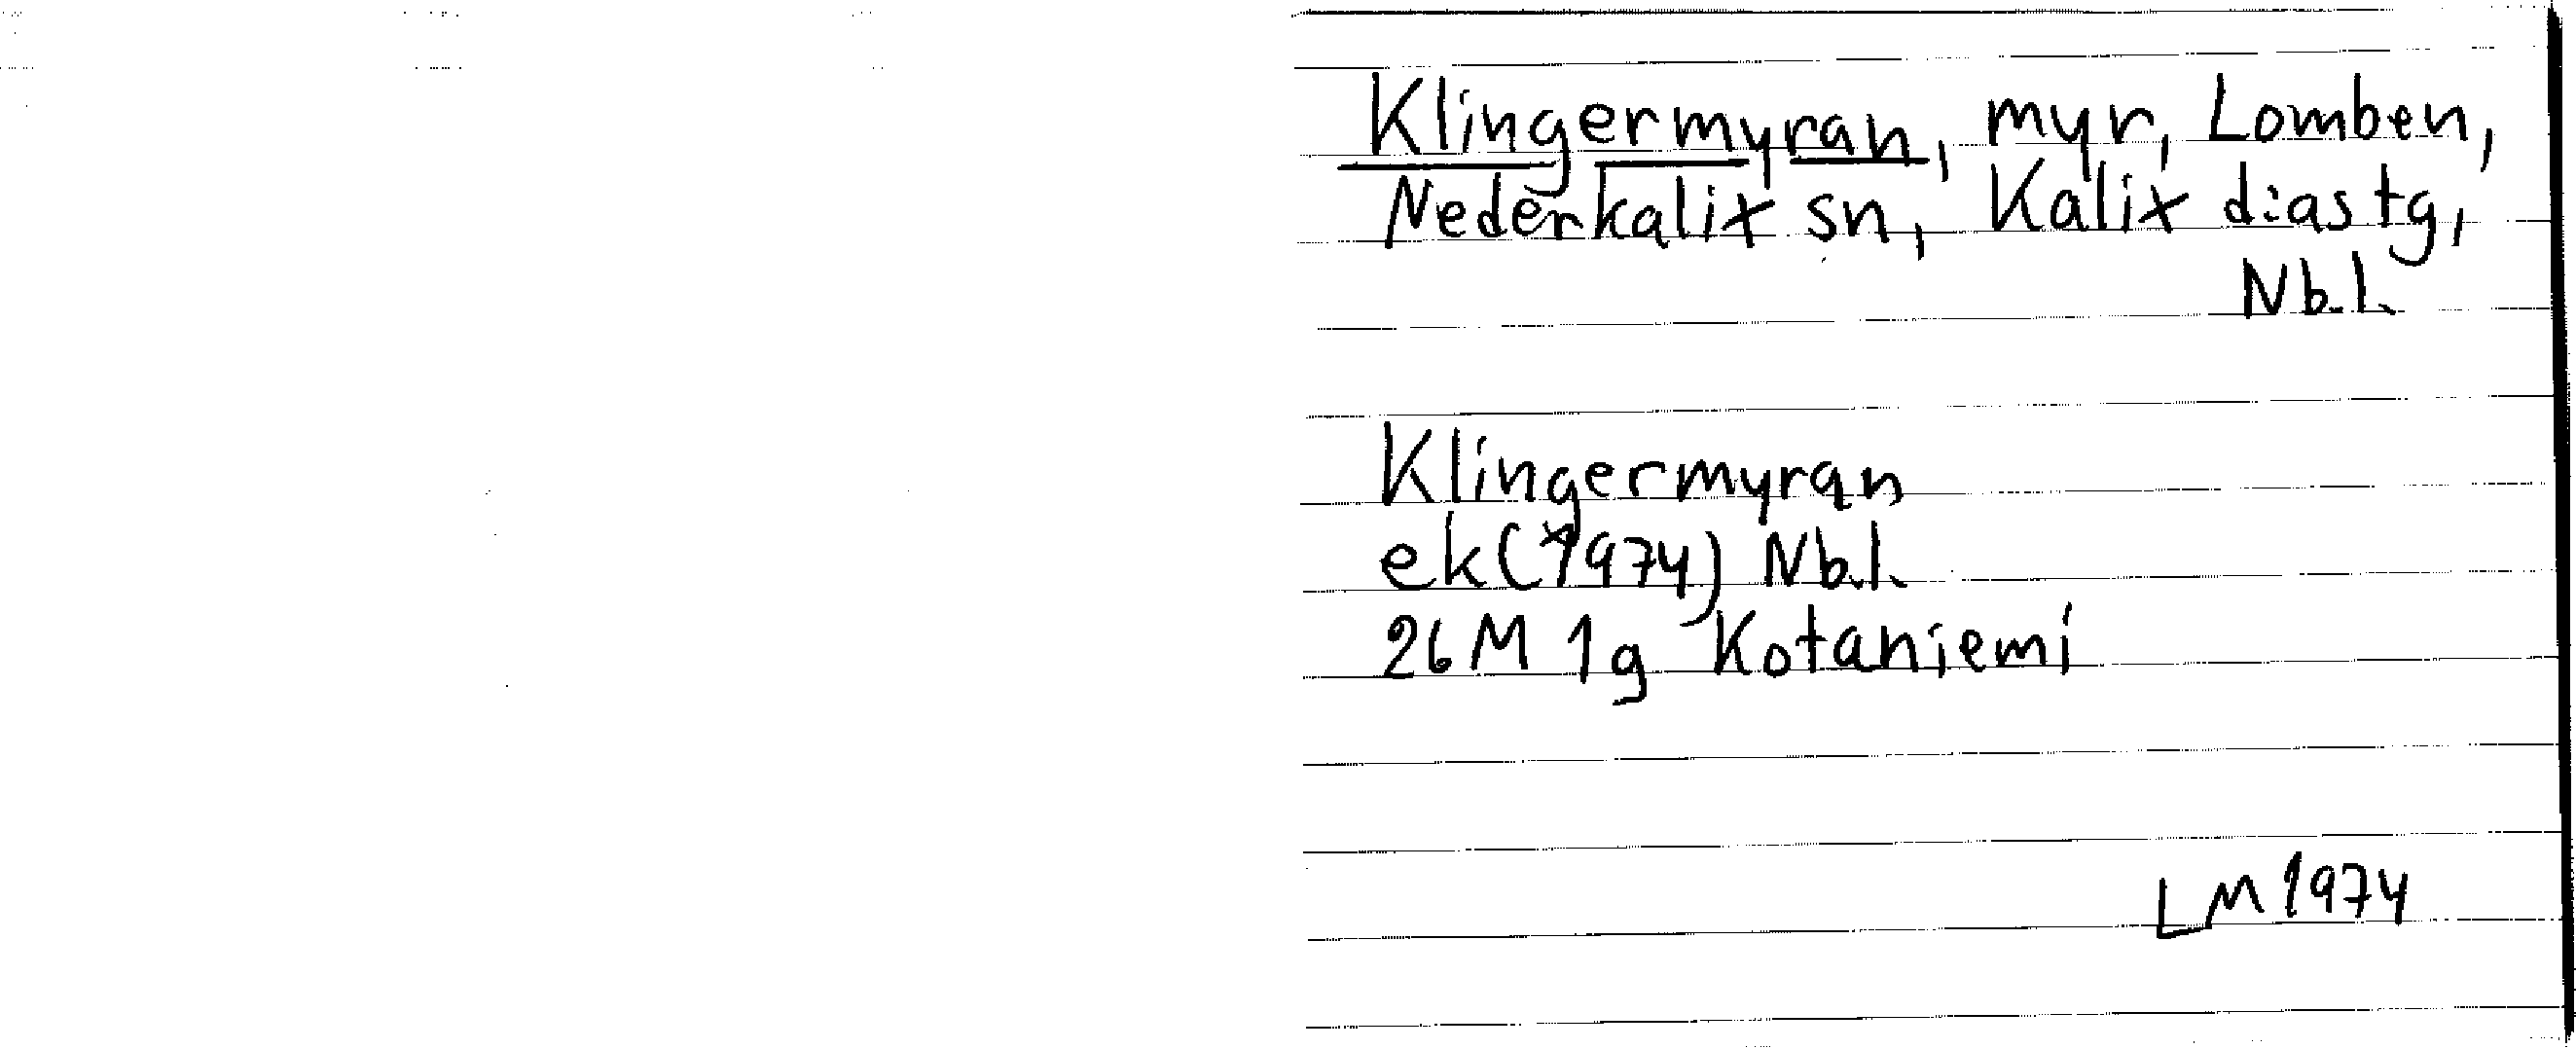 Klingermyran, myr, Lomben,
Nederkalix sn, Kalix d:astg,
Nb.l.
Klingermyran
ek (1974) Nb.l.
26 M 1g Kotaniemi
LM 1974